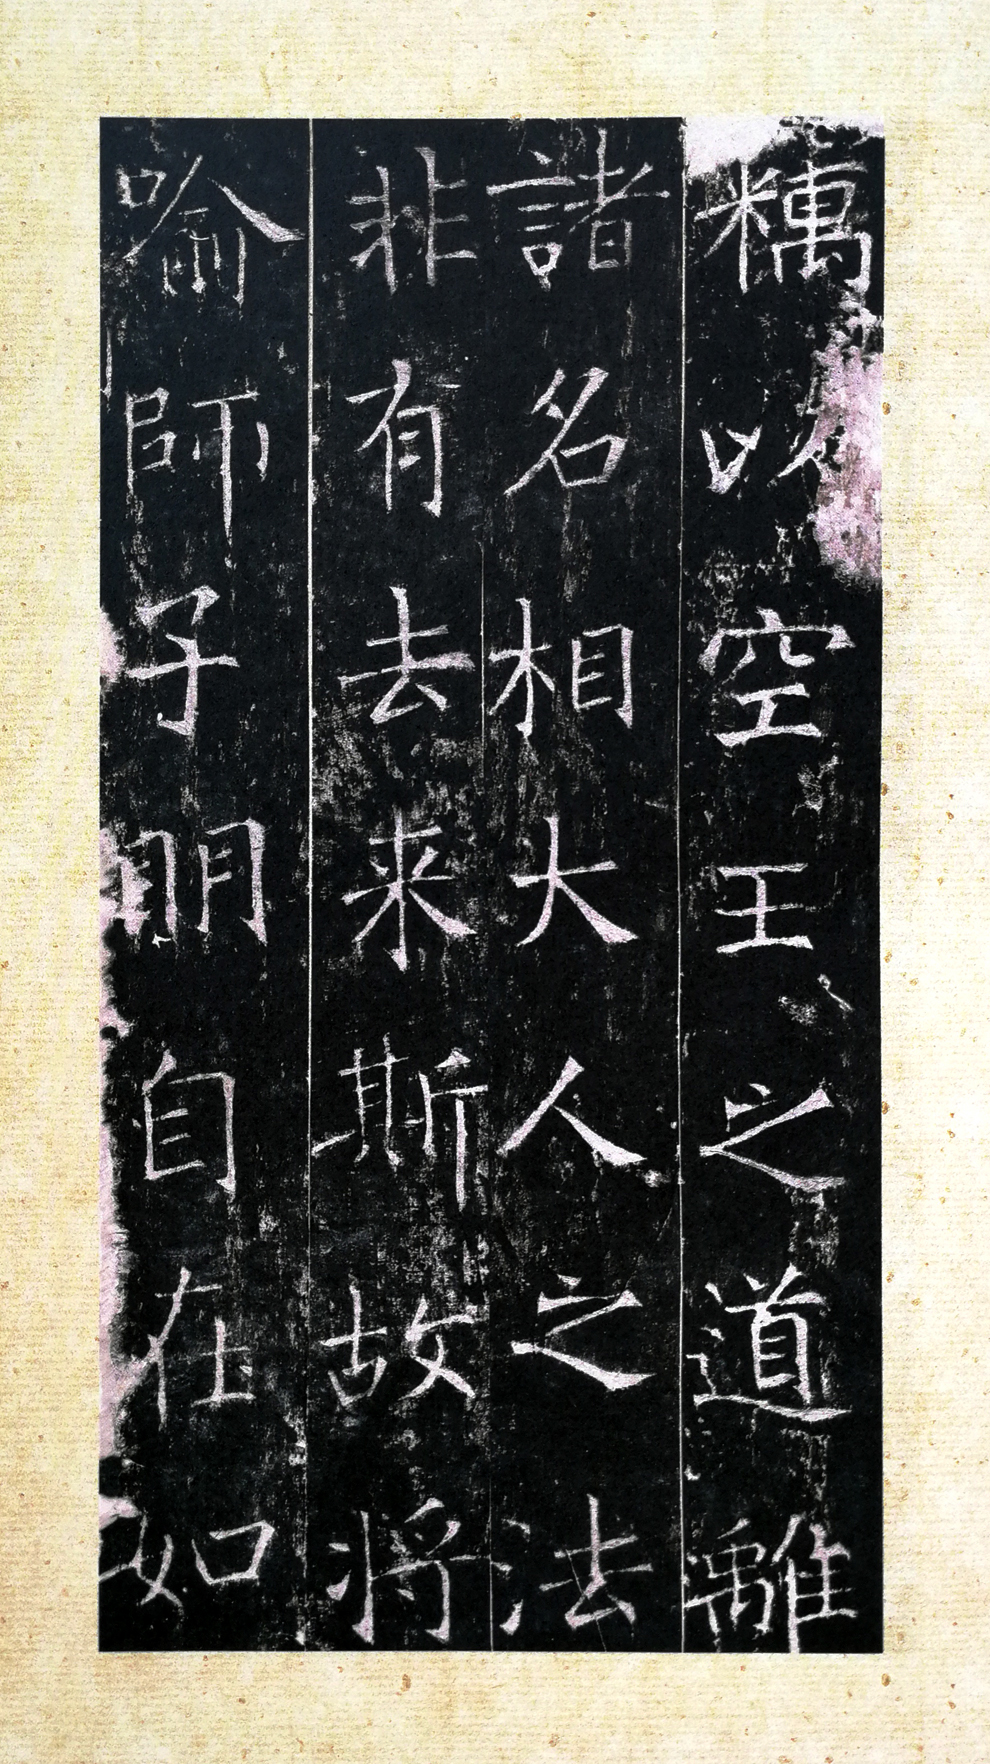 竊以空王之道離
諸名相大人之法
非有去来斯故將
喻師子眀自在如